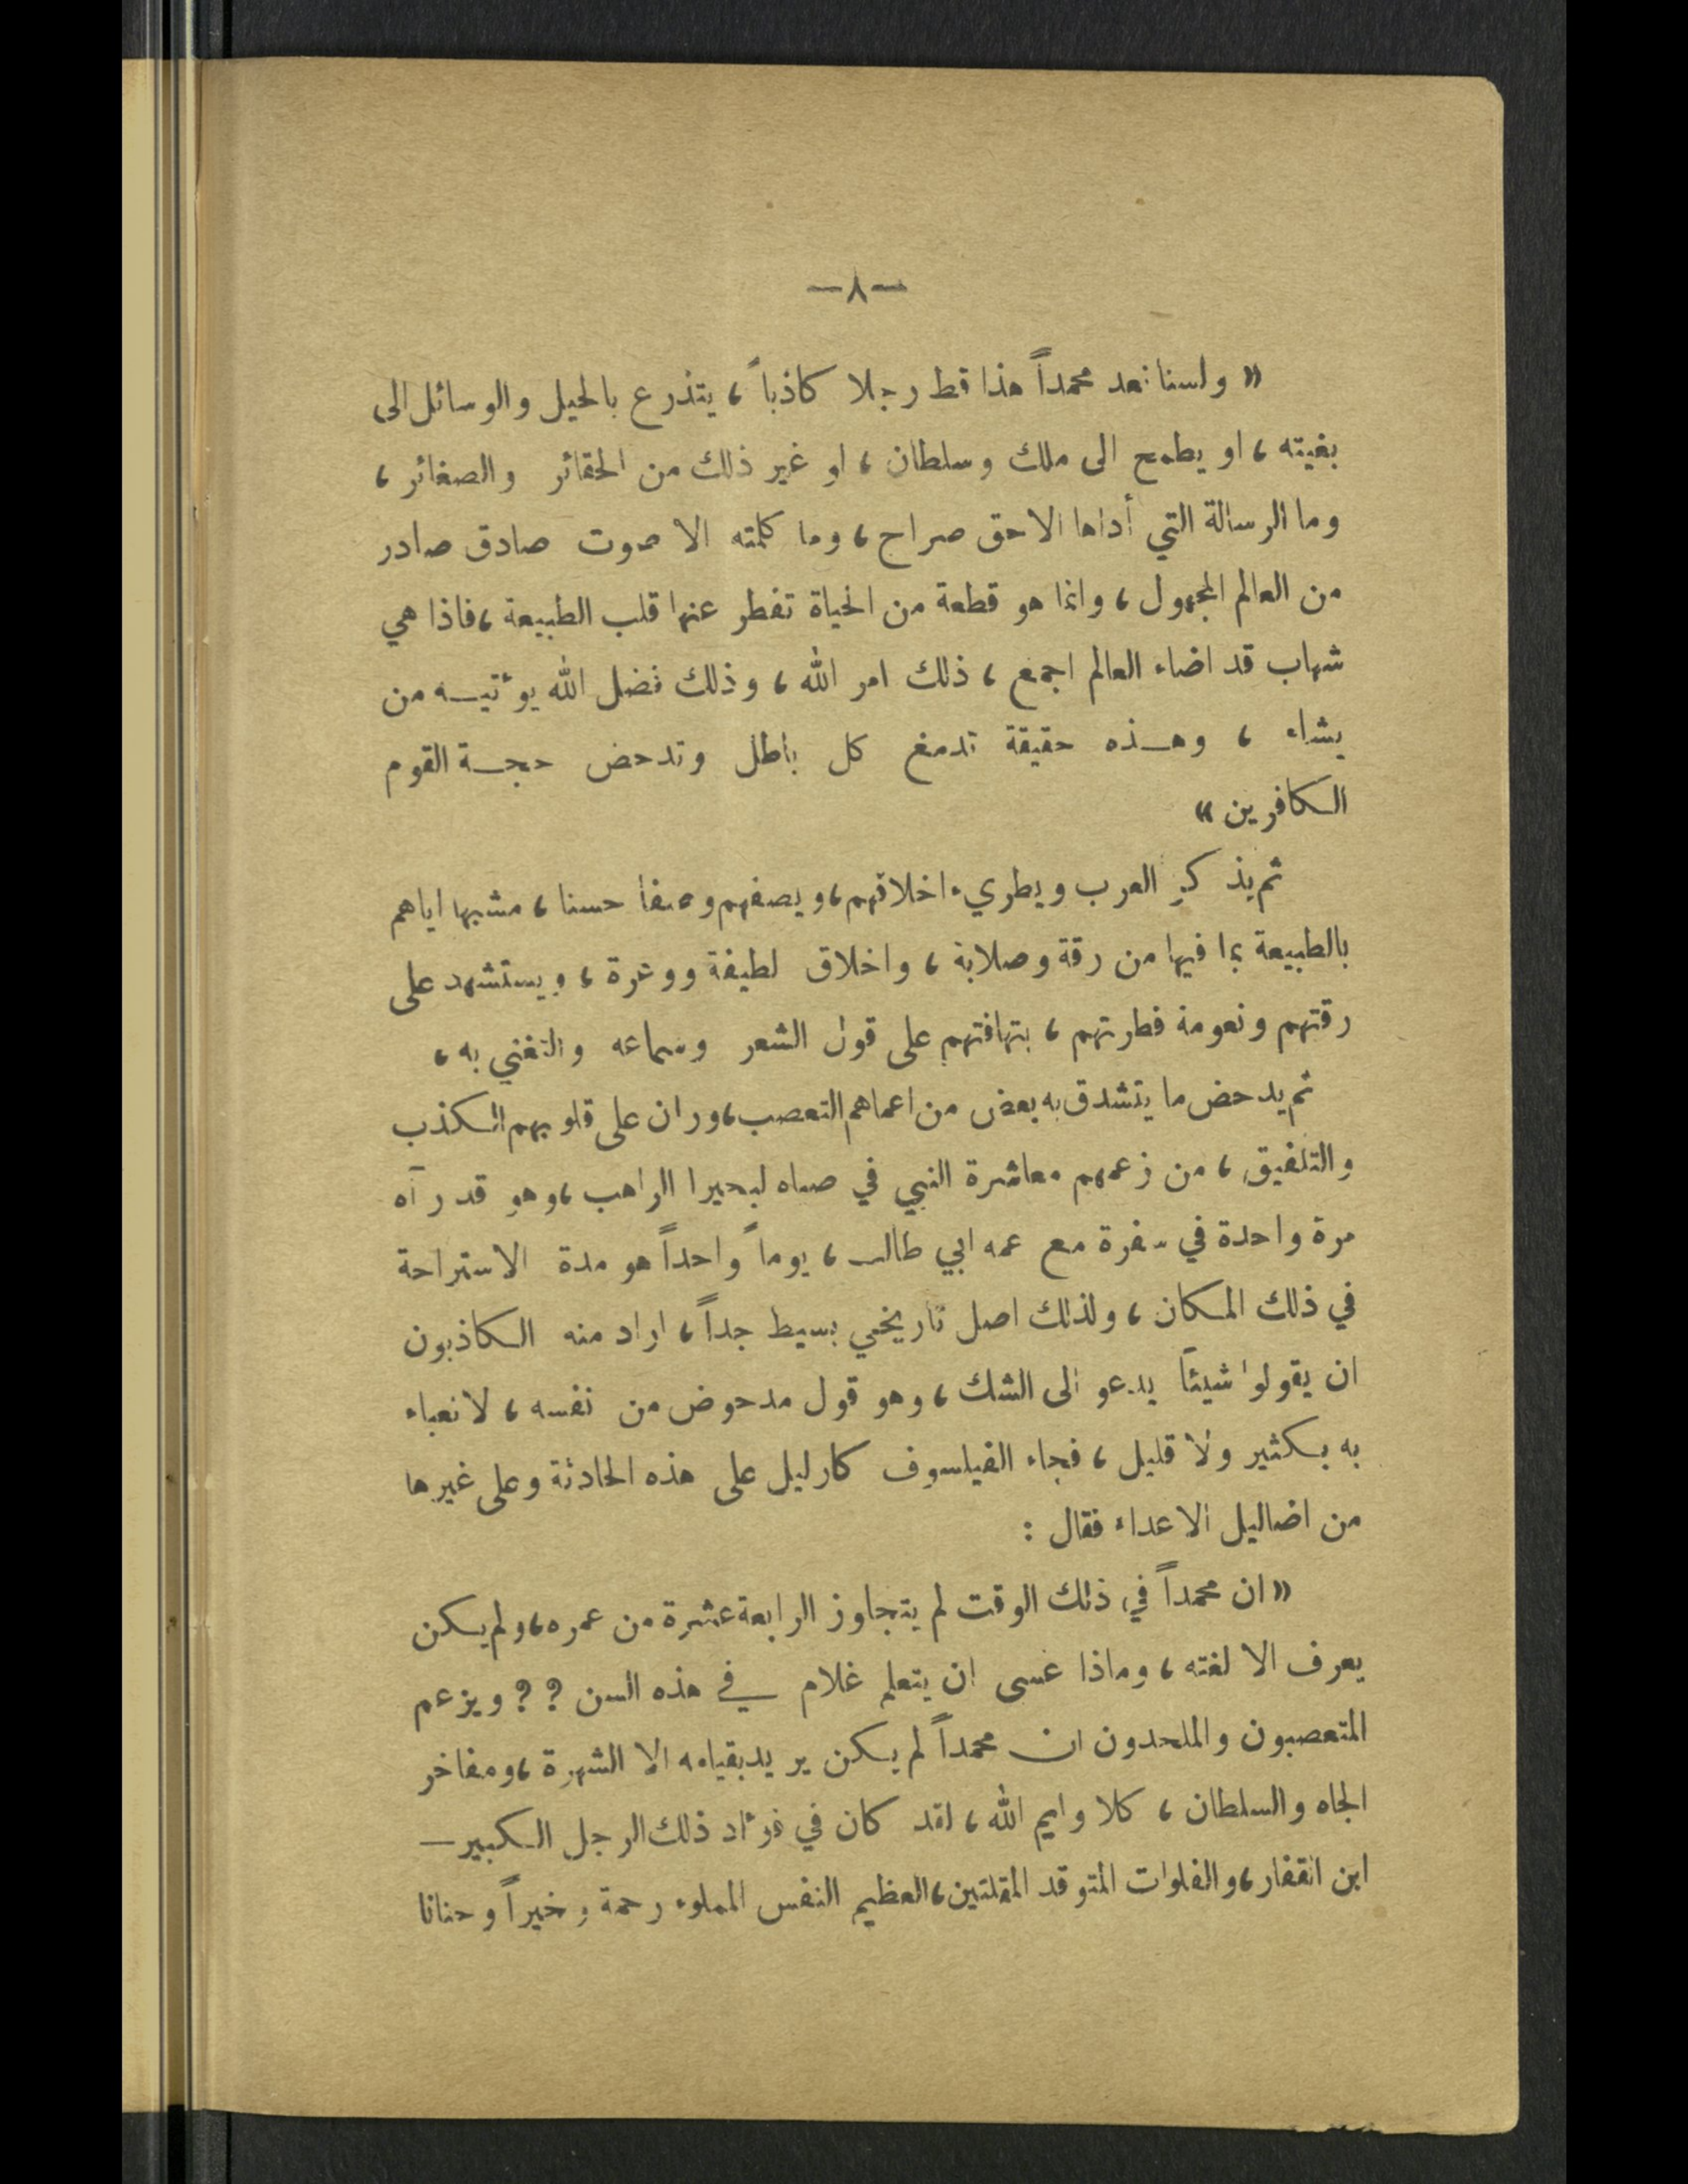 —٨—
« ولسنا نعد محمداً هذا قط رجلا كاذباً ، يتذرع بالحيل والوسائل الى
بغيته ، او يطمح الى ملك وسلطان ، او غير ذلك من الحقائر والصغائر ،
وما الرسالة التي أداها الا حق صراح ، وما كلمته الا صوت صادق صادر
من العالم المجهول ، وانما هو قطعة من الحياة تفطر عنها قلب الطبيعة ، فاذا هي
شهاب قد اضاء العالم اجمع ، ذلك امر الله ، وذلك فضل الله يوءتيـه من
يشاء ، وهـذه حقيقة تدمغ كل باطل وتدحض حجـة القوم
الكافرين »
ثم يذكر العرب ويطريء اخلاقهم ، ويصفهم وصفا حسنا ، مشبها اياهم
بالطبيعة بما فيها من رقة وصلابة ، واخلاق لطيفة ووعرة ، ويستشهد على
رقتهم ونعومة فطرتهم ، بتهافتهم على قول الشعر وسماعه والتغني به ،
ثم يدحض ما يتشدق به بعض من اعماهم التعصب ، وران على قلوبهم الكذب
والتلفيق ، من زعمهم معاشرة النبي في صباه لبحيرا الراهب ، وهو قد رآه
مرة واحدة في سفرة مع عمه ابي طالب ، يوماً واحداً هو مدة الاستراحة
في ذلك المكان ، ولذلك اصل تاريخي بسيط جداً ، اراد منه الكاذبون
ان يقولوا شيئاً يدعو الى الشك ، وهو قول مدحوض من نفسه ، لا نعباء
به بكثير ولا قليل ، فجاء الفيلسوف كارليل على هذه الحادثة وعلى غيرها
من اضاليل الاعداء فقال :
« ان محمداً في ذلك الوقت لم يتجاوز الرابعة عشرة من عمره ، ولم يكن
يعرف الا لغته ، وماذا عسى ان يتعلم غلام في هذه السن ؟ ؟ ويزعم
المتعصبون والملحدون ان محمداً لم يكن يريد بقيامه الا الشهرة ، ومفاخر
الجاه والسلطان ، كلا وايم الله ، لقد كان في فوءاد ذلك الرجل الكبير —
ابن القفار ، والفلوات المتوقد المقلتين ، العظيم النفس المملوء رحمة وخيراً وحنانا